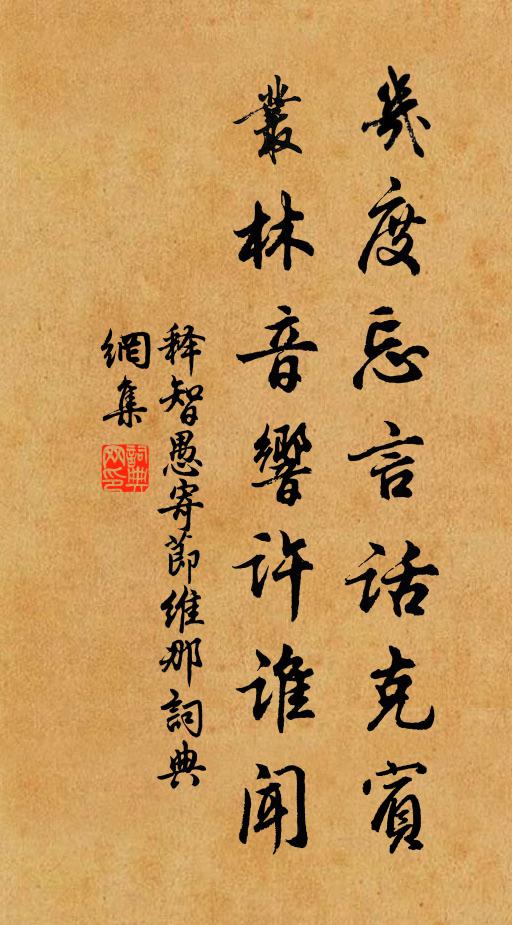 幾度忘言話克賓
叢林音響許誰聞
释智愚寄節維那詞典
網集
詞典網印